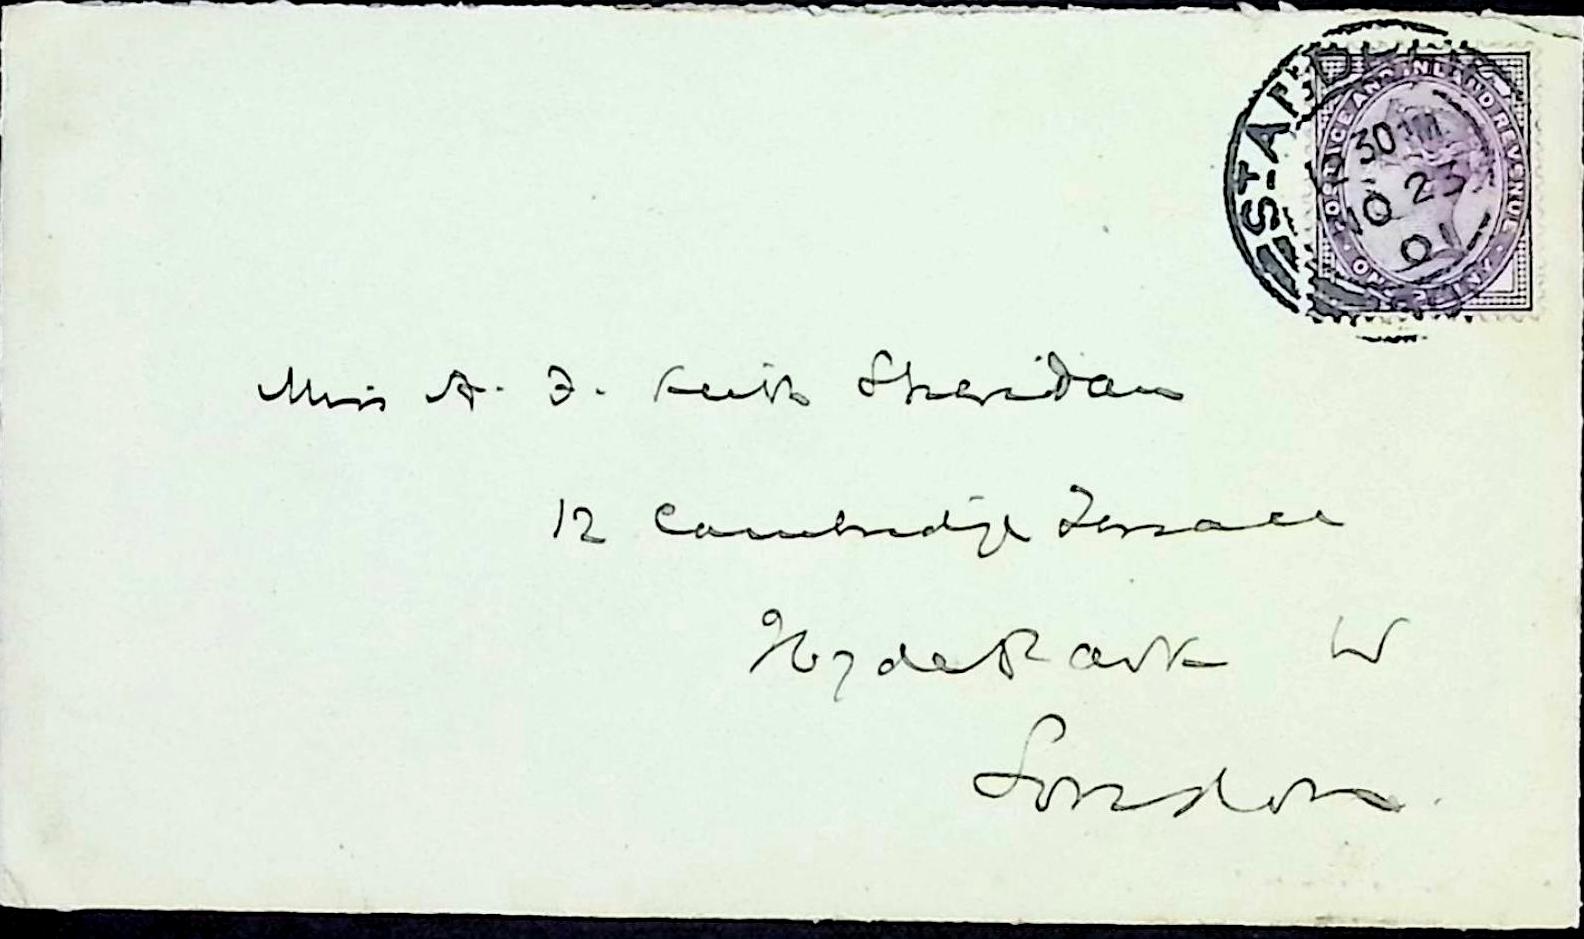 ST. ANDREWS
12 30 PM
NO 23
01
POSTAGE AND INLAND REVENUE
Miss A. F. Keith Sheridan
12 Cambridge Terrace
Hyde Park W
London.